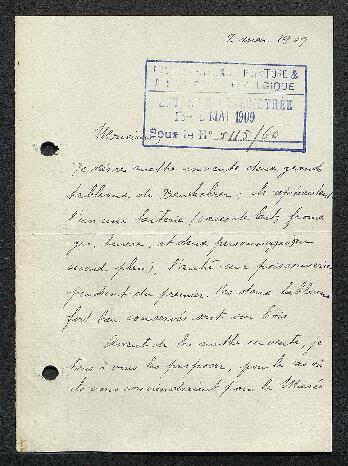 7 mai 1909
PEINTURE &
LETTRE ENREGISTRÉE
MAI 1909
Sous le N° 5115/60
Monsieur,
Je désire mettre en vente deux grands
tableaux de Beuckelaer; ils représentent
l'un une laiterie (avec du lait, froma
ge, beurre, et deux personnages au
second plan), l'autre une poissonnerie
pendant du premier. Ces deux tableaux
fort bien conservés sont sur bois
Avant de les mettre en vente, je
tiens à vous les proposer, pour le cas où
ils vous conviendraient pour le Musée